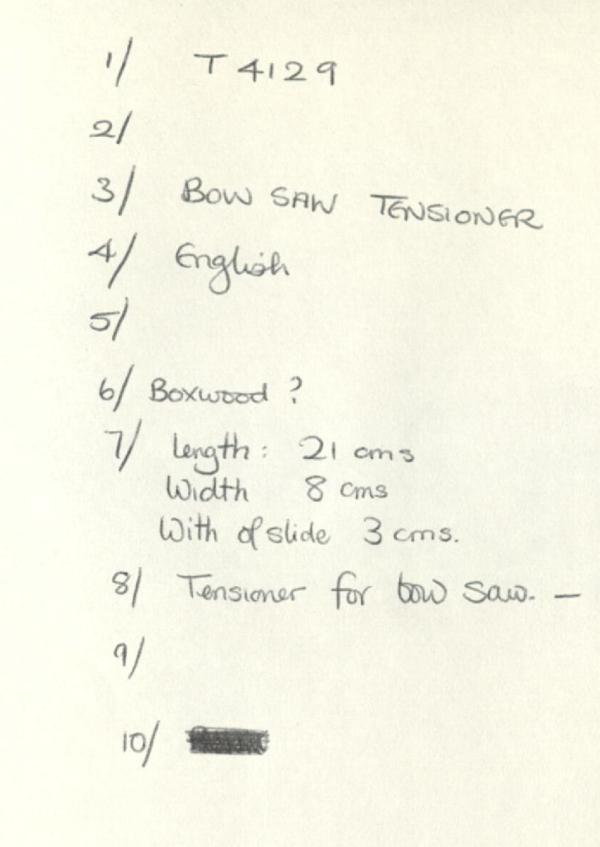 1/ T 4129
2/
3/ BOW SAW TENSIONER
4/ English
5/
6/ Boxwood ?
7/ Length: 21 cms
Width 8 cms
With of slide 3 cms.
8/ Tensioner for bow saw. –
9/
10/